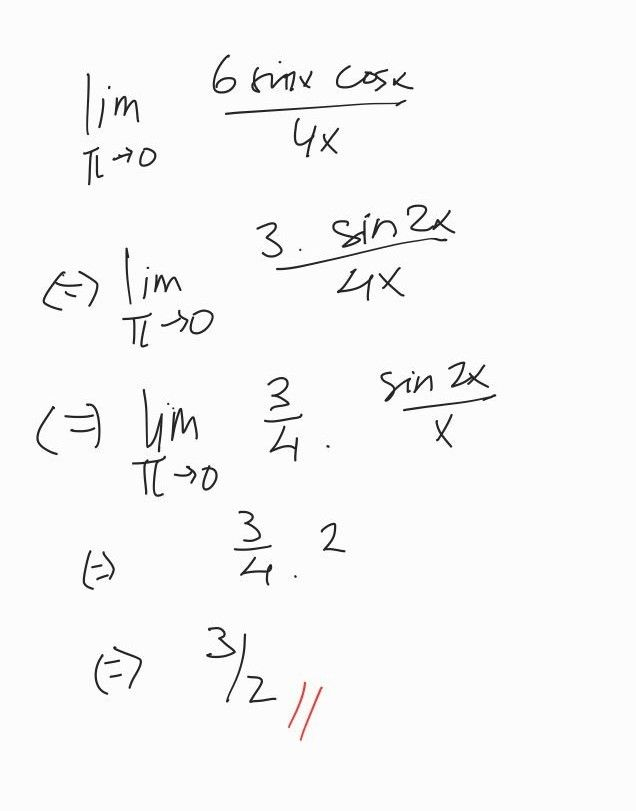 lim π→0 6 sinx cosx / 4x
⇔ lim π→0 3 . sin 2x / 4x
⇔ lim π→0 3/4 . sin 2x / x
⇔ 3/4 . 2
⇔ 3/2 //